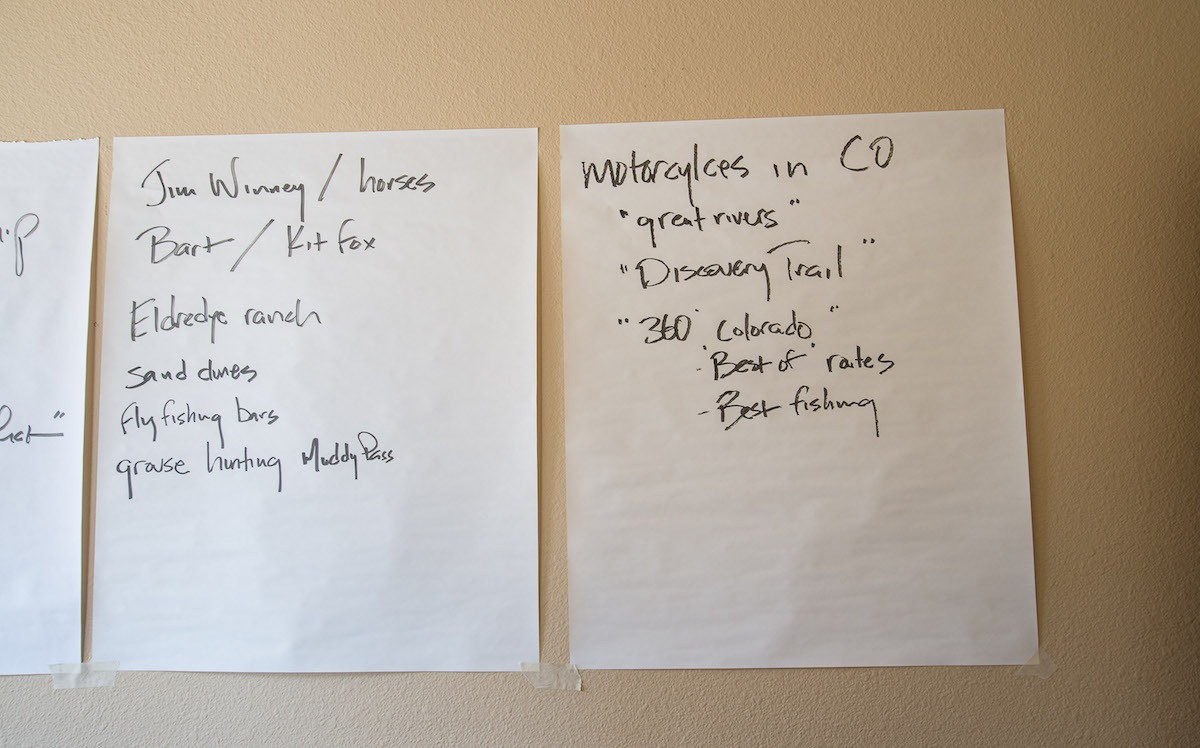 Jim Winney / horses
Bart / Kit Fox
Eldredge ranch
sand dunes
fly fishing bars
grouse hunting Muddy Pass
motorcylces in CO
"great rivers"
"Discovery Trail"
"360° Colorado"
- "Best of" routes
- Best fishing